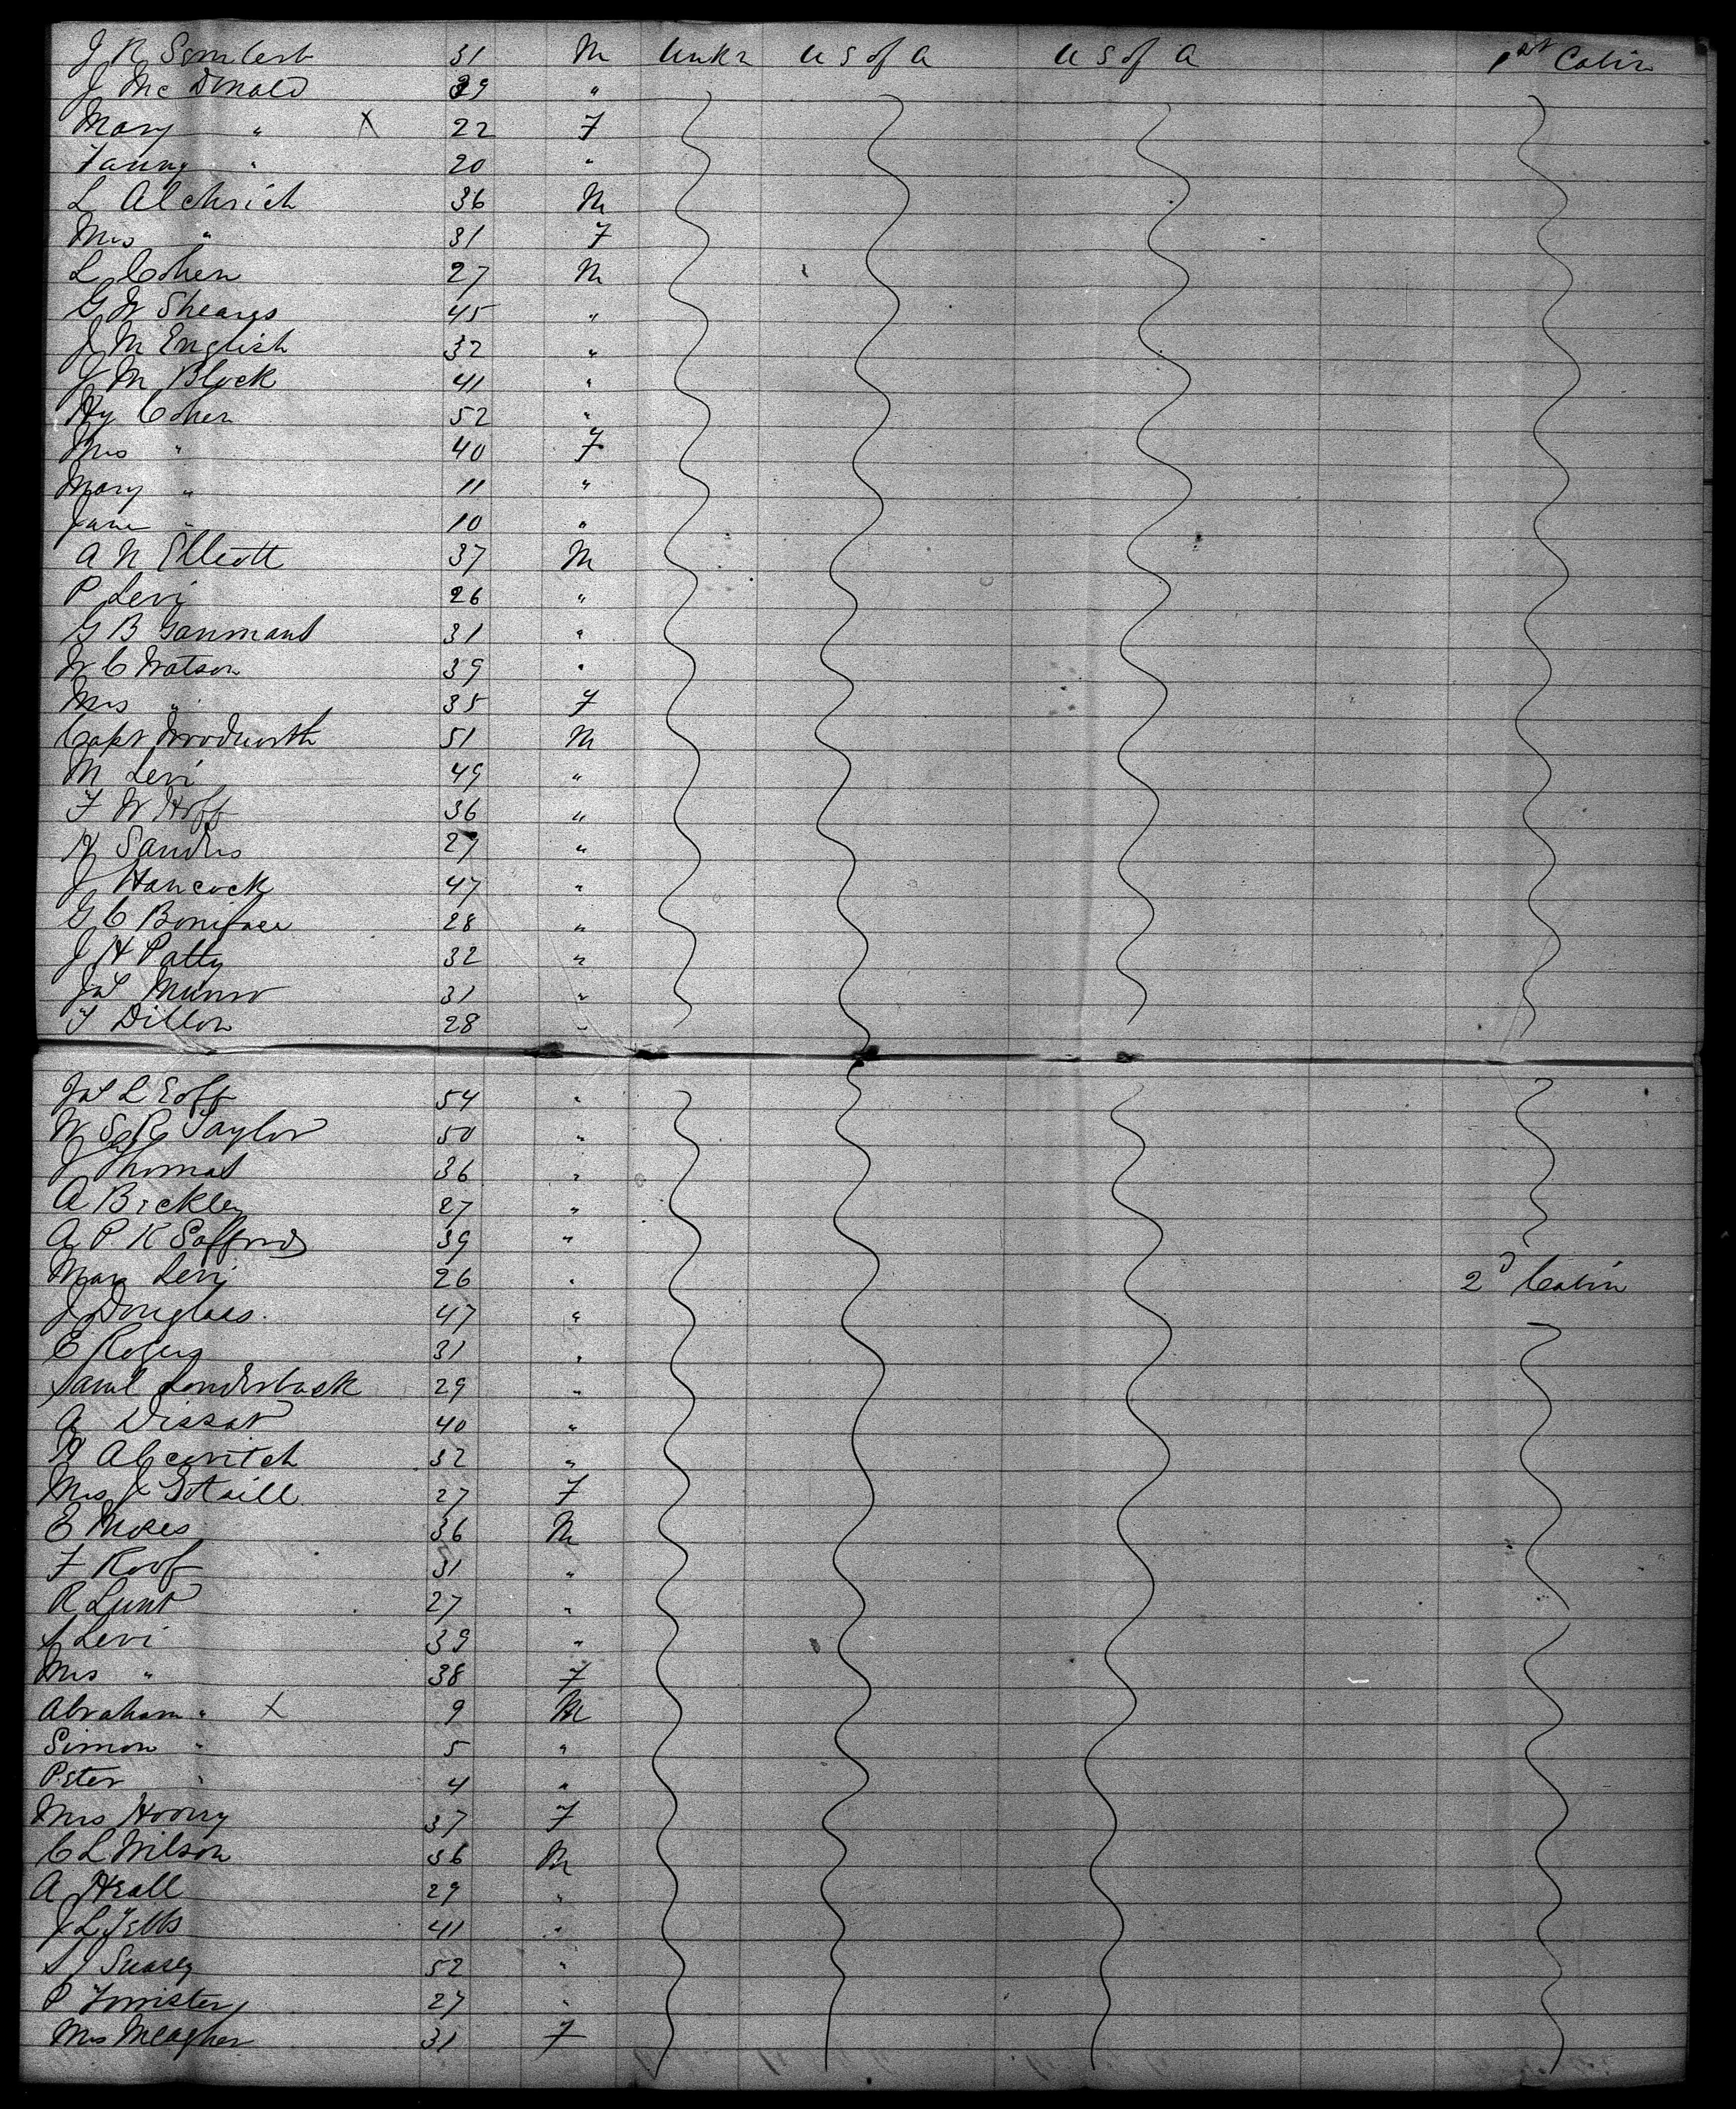 J R 31 M Unkn U S of A U S of A 1st Cabin
J McDonald 39 "
Mary " X 22 F
Fanny " 20 "
L Aldrich 36 M
Mrs " 31 F
L Cohen 27 M
G W Sheares 45 "
J M English 32 "
J M Block 41 "
Hy Cohen 52 "
Mrs " 40 F
Mary " 11 "
Jane " 10 "
A N Elliott 37 M
P Levi 26 "
G B 31 "
W C Watson 39 "
Mrs " 35 F
Capt Woodworth 51 M
M Levi 49 "
F W Hoff 36 "
H Sanders 29 "
J Hancock 47 "
G C Boniface 28 "
J H Patty 32 "
Jas Munro 31 "
T Dillon 28 "
Jas L Eoff 54 "
W S R Taylor 50 "
J Thomas 36 "
A Bickley 27 "
A P K Safford 39 "
Max Levi 26 " 2d Cabin
J Douglass 47 "
E Rogers 31 "
Saml Londerback 29 "
A Dissat 40 "
H Abcovitch 32 "
Mrs J 27 F
E Moses 36 M
F Roof 31 "
R Lunt 27 "
S Levi 39 "
Mrs " 38 F
Abraham " X 9 M
Simon " 5 "
Peter " 4 "
Mrs 37 F
C L Wilson 36 M
A Heall 29 "
J L Tebbs 41 "
S J 52 "
P 27 "
Mrs Meagher 31 F